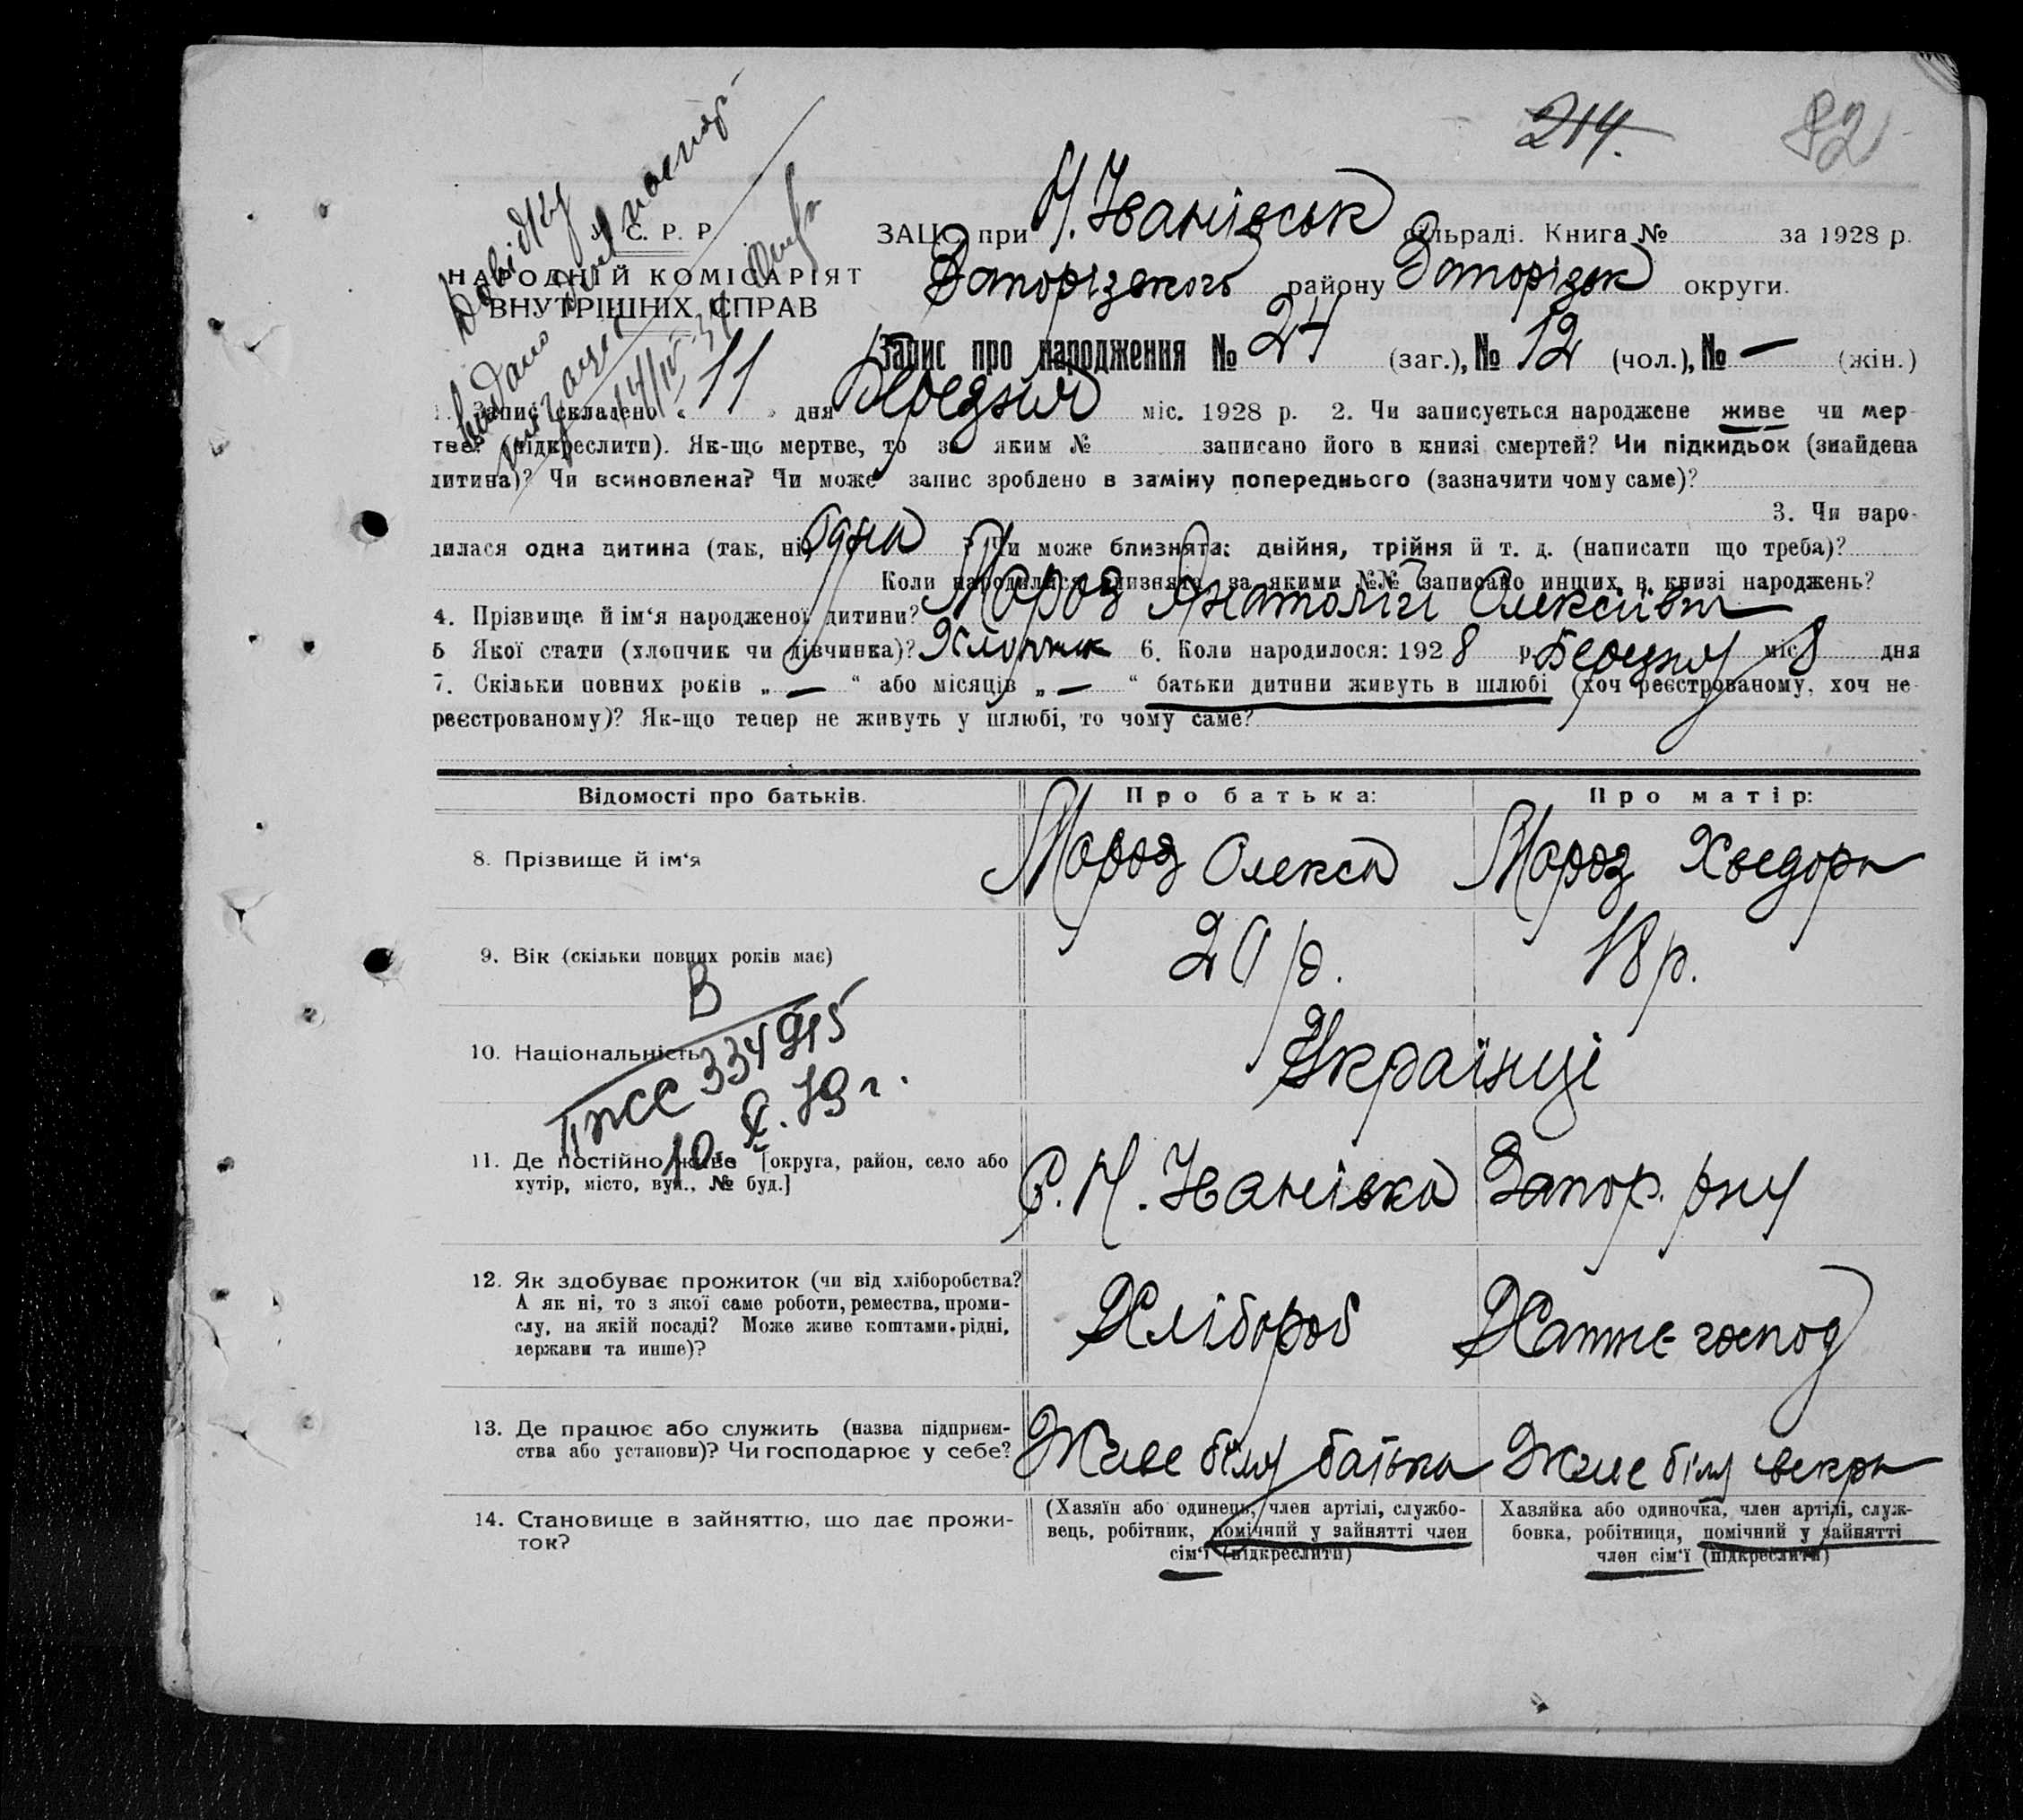 214.
82
У. С. Р. Р.
НАРОДНІЙ КОМІСАРІЯТ
ВНУТРІШНІХ СПРАВ
Довідку
видано
ЗАЦС при Н. Іванівськ сільраді. Книга № за 1928 р.
Запорізького району Запорізьк округи.
Запис про народження № 24 (заг.), № 12 (чол.), № — (жін.)
1. Запис складено „ 11 " дня Березня міс. 1928 р. 2. Чи записується народжене живе чи мер-
тве? (підкреслити). Як-що мертве, то за яким № записано його в книзі смертей? Чи підкидьок (знайдена
дитина)? Чи всиновлена? Чи може запис зроблено в заміну попереднього (зазначити чому саме)?
3. Чи наро-
дилася одна дитина (так, ні) одна ? Чи може близнята: двійня, трійня й т. д. (написати що треба)?
Коли народилися близнята, за якими №№ записано инших в книзі народжень?
4. Прізвище й ім'я народженої дитини? Мороз Анатолій Олексіївич
5 Якої стати (хлопчик чи дівчинка)? Хлопчик 6. Коли народилося: 1928 р. Березня міс 8 дня
7. Скільки повних років „ — " або місяців „ — " батьки дитини живуть в шлюбі (хоч реєстрованому, хоч не
реєстрованому)? Як-що тепер не живуть у шлюбі, то чому саме?
Відомості про батьків. Про батька: Про матір:
8. Прізвище й ім'я Мороз Олекса Мороз Хведора
9. Вік (скільки повних років має) 20 р. 18 р.
В
10. Національність Українці
334915
10. X. 79 г.
11. Де постійно живе [округа, район, село або
хутір, місто, вул., № буд.] С. Н. Іванівка Запор. р-ну
12. Як здобуває прожиток (чи від хліборобства?
А як ні, то з якої саме роботи, ремества, проми-
слу, на якій посаді? Може живе коштами рідні,
держави та инше)? Хлібороб Хатнє господ
13. Де працює або служить (назва підприєм-
ства або установи)? Чи господарює у себе? Живе біля батька Живе біля свекра
14. Становище в зайняттю, що дає прожи-
ток?
(Хазяїн або одинець, член артілі, службо-
вець, робітник, помічний у зайнятті член
сім'ї (підкреслити)
Хазяйка або одиночка, член артілі, служ-
бовка, робітниця, помічний у зайнятті
член сім'ї (підкреслити)